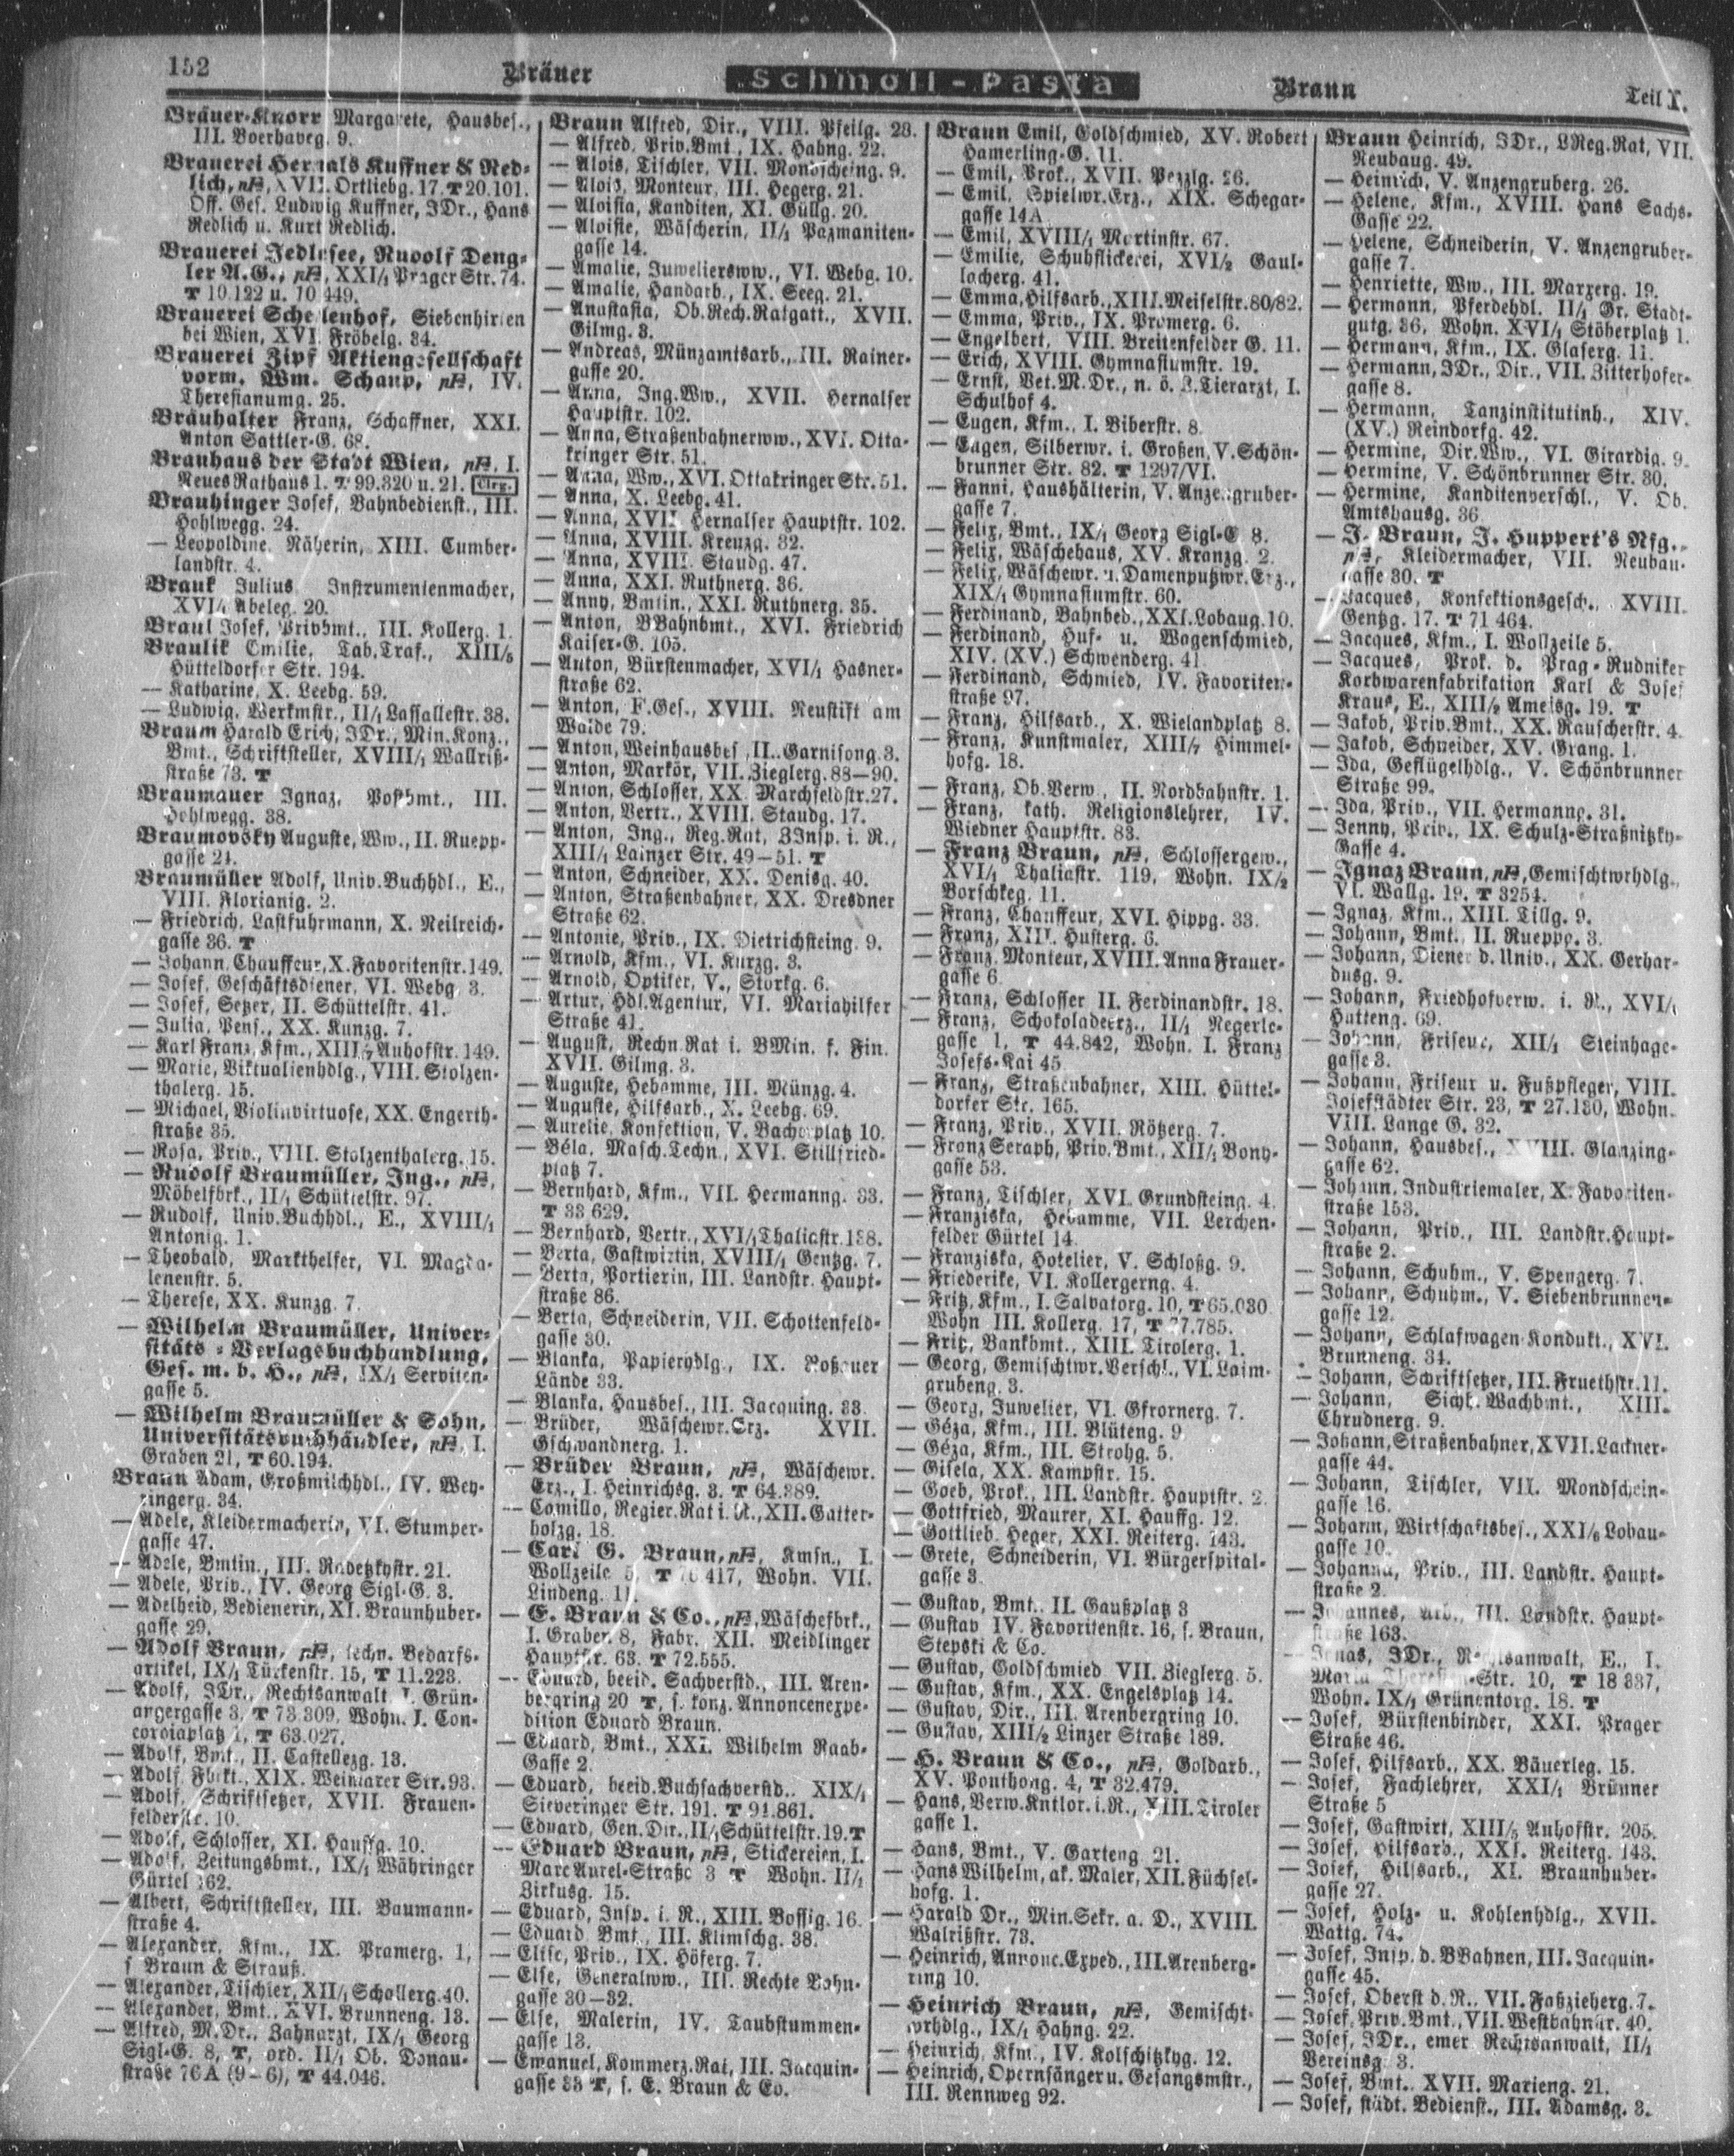 152
Bräuer
Schmoll-Pasta
Braun
Teil I.
Bräuer-Knorr Margarete, Hausbes.,
III. Boerhaveg. 9.
Brauerei Hernals Kuffner & Red-
lich, pF, XVII. Ortliebg. 17. T 20.101.
Öff. Ges. Ludwig Kuffner, JDr., Hans
Redlich u. Kurt Redlich.
Brauerei Jedlesee, Rudolf Deng-
ler A.G., pF, XXI/1 Prager Str. 74.
T 10.122 u. 10 449.
Brauerei Schellenhof, Siebenhirten
bei Wien, XVI. Fröbelg. 34.
Brauerei Zipf Aktiengesellschaft
vorm. Wm. Schaup, pF, IV.
Theresianumg. 25.
Bräuhalter Franz, Schaffner, XXI.
Anton Sattler-G. 68.
Brauhaus der Stadt Wien, pF, I.
Neues Rathaus 1. T 99.320 u. 21.
Brauhinger Josef, Bahnbedienst., III.
Hohlwegg. 24.
— Leopoldine, Näherin, XIII. Cumber-
landstr. 4.
Brauk Julius Instrumentenmacher,
XVI/1 Abeleg. 20.
Braul Josef, Privbmt., III. Kollerg. 1.
Braulik Emilie, Tab.Traf., XIII/5
Hütteldorfer Str. 194.
— Katharine, X. Leebg. 59.
— Ludwig, Werkmstr., II/1 Lassallestr. 38.
Braum Harald Erich, JDr., Min.Konz.,
Bmt., Schriftsteller, XVIII/1 Wallriß-
straße 73. T
Braumauer Ignaz, Postbmt., III.
Hohlwegg. 38.
Braumovsky Auguste, Ww., II. Ruepp-
gasse 21.
Braumüller Adolf, Univ.Buchhdl., E.,
VIII. Florianig. 2.
— Friedrich, Lastfuhrmann, X. Neilreich-
gasse 36. T
— Johann, Chauffeur, X. Favoritenstr. 149.
— Josef, Geschäftsdiener, VI. Webg. 3.
— Josef, Setzer, II. Schüttelstr. 41.
— Julia, Pens., XX. Kunzg. 7.
— Karl Franz, Kfm., XIII/7 Auhofstr. 149.
— Marie, Viktualienhdlg., VIII. Stolzen-
thalerg. 15.
— Michael, Violinvirtuose, XX. Engerth-
straße 35.
— Rosa, Priv., VIII. Stolzenthalerg. 15.
— Rudolf Braumüller, Ing., pF,
Möbelfbrk., II/1 Schüttelstr. 97.
— Rudolf, Univ.Buchhdl., E., XVIII/1
Antonig. 1.
— Theobald, Markthelfer, VI. Magda-
lenenstr. 5.
— Therese, XX. Kunzg. 7.
— Wilhelm Braumüller, Univer-
sitäts-Verlagsbuchhandlung,
Ges. m. b. H., pF, IX/1 Serviten-
gasse 5.
— Wilhelm Braumüller & Sohn,
Universitätsbuchhändler, pF, I.
Graben 21, T 60.194.
Braun Adam, Großmilchhdl., IV. Wey-
ringerg. 34.
— Adele, Kleidermacherin, VI. Stumper-
gasse 47.
— Adele, Bmtin., III. Radetzkystr. 21.
— Adele, Priv., IV. Georg Sigl-G. 3.
— Adelheid, Bedienerin, XI. Braunhuber-
gasse 29.
— Adolf Braun, pF, techn. Bedarfs-
artikel, IX/1 Türkenstr. 15, T 11.223.
— Adolf, JDr., Rechtsanwalt I. Grün-
angergasse 3, T 73.309, Wohn. I. Con-
cordiaplatz 1, T 63.027.
— Adolf, Bmt., II. Castellezg. 13.
— Adolf, Fbrkt., XIX. Weimarer Str. 93.
— Adolf, Schriftsetzer, XVII. Frauen-
felderstr. 10.
— Adolf, Schlosser, XI. Hauffg. 10.
— Adolf, Leitungsbmt., IX/1 Währinger
Gürtel 162.
— Albert, Schriftsteller, III. Baumann-
straße 4.
— Alexander, Kfm., IX. Pramerg. 1,
s. Braun & Strauß.
— Alexander, Tischler, XII/1 Schallerg. 40.
— Alexander, Bmt., XVI. Brunneng. 13.
— Alfred, M.Dr., Zahnarzt, IX/1 Georg
Sigl-G. 8, T, ord. II/1 Ob. Donau-
straße 76A (9–6), T 44.046.
Braun Alfred, Dir., VIII. Pfeilg. 28.
— Alfred, Priv.Bmt., IX. Hahng. 22.
— Alois, Tischler, VII. Mondscheing. 9.
— Alois, Monteur, III. Hegerg. 21.
— Aloisia, Kanditen, XI. Güllg. 20.
— Aloisie, Wäscherin, II/1 Pazmaniten-
gasse 14.
— Amalie, Juweliersww., VI. Webg. 10.
— Amalie, Handarb., IX. Seeg. 21.
— Anastasia, Ob.Rech.Ratgatt., XVII.
Gilmg. 3.
— Andreas, Münzamtsarb., III. Rainer-
gasse 20.
— Anna, Ing.Ww., XVII. Hernalser
Hauptstr. 102.
— Anna, Straßenbahnerww., XVI. Otta-
kringer Str. 51.
— Anna, Ww., XVI. Ottakringer Str. 51.
— Anna, X. Leebg. 41.
— Anna, XVII. Hernalser Hauptstr. 102.
— Anna, XVIII. Kreuzg. 32.
— Anna, XVIII. Staudg. 47.
— Anna, XXI. Ruthnerg. 36.
— Anny, Bmtin., XXI. Ruthnerg. 35.
— Anton, BBahnbmt., XVI. Friedrich
Kaiser-G. 105.
— Anton, Bürstenmacher, XVI/1 Hasner-
straße 62.
— Anton, F.Ges., XVIII. Neustift am
Walde 79.
— Anton, Weinhausbes., II. Garnisong. 3.
— Anton, Markör, VII. Zieglerg. 88—90.
— Anton, Schlosser, XX. Marchfeldstr. 27.
— Anton, Vertr., XVIII. Staudg. 17.
— Anton, Ing., Reg.Rat, BInsp. i. R.,
XIII/1 Lainzer Str. 49—51. T
— Anton, Schneider, XX. Denisg. 40.
— Anton, Straßenbahner, XX. Dresdner
Straße 62.
— Antonie, Priv., IX. Dietrichsteing. 9.
— Arnold, Kfm., VI. Kurzg. 3.
— Arnold, Optiker, V., Storkg. 6.
— Artur, Hdl.Agentur, VI. Mariahilfer
Straße 41.
— August, Rechn.Rat i. BMin. f. Fin.
XVII. Gilmg. 3.
— Auguste, Hebamme, III. Münzg. 4.
— Auguste, Hilfsarb., X. Leebg. 69.
— Aurelie, Konfektion, V. Bacherplatz 10.
— Béla, Masch.Techn., XVI. Stillfried-
platz 7.
— Bernhard, Kfm., VII. Hermanng. 33.
T 33 629.
— Bernhard, Vertr., XVI/1 Thaliastr. 138.
— Berta, Gastwirtin, XVIII/1 Gentzg. 7.
— Berta, Portierin, III. Landstr. Haupt-
straße 86.
— Berta, Schneiderin, VII. Schottenfeld-
gasse 30.
— Blanka, Papierhdlg., IX. Roßauer
Lände 33.
— Blanka, Hausbes., III. Jacquing. 33.
— Brüder, Wäschewr.Erz. XVII.
Gschwandnerg. 1.
— Brüder Braun, pF, Wäschewr.
Erz., I. Heinrichsg. 3. T 64.389.
— Camillo, Regier.Rat i. R., XII. Gatter-
holzg. 18.
— Carl G. Braun, pF, Kmfn., I.
Wollzeile 5, T 76 417, Wohn. VII.
Lindeng. 11.
— E. Braun & Co., pF, Wäschefbrk.,
I. Graben 8, Fabr. XII. Meidlinger
Hauptstr. 63. T 72.555.
— Eduard, beeid. Sachverstd., III. Aren-
bergring 20 T, s. konz. Annoncenexpe-
dition Eduard Braun.
— Eduard, Bmt., XXI. Wilhelm Raab-
Gasse 2.
— Eduard, beeid. Buchsachverstd., XIX/1
Sieveringer Str. 191. T 91.861.
— Eduard, Gen.Dir., II/1 Schüttelstr. 19. T
— Eduard Braun, pF, Stickereien, I.
Marc Aurel-Straße 3 T Wohn. II/1
Zirkusg. 15.
— Eduard, Insp. i. R., XIII. Bossig. 16.
— Eduard Bmt., III. Klimschg. 38.
— Elise, Priv., IX. Höferg. 7.
— Else, Generalww., III. Rechte Bahn-
gasse 30—32.
— Else, Malerin, IV. Taubstummen-
gasse 13.
— Emanuel, Kommerz.Rat, III. Jacquin-
gasse 33 T, s. E. Braun & Co.
Braun Emil, Goldschmied, XV. Robert
Hamerling-G. 11.
— Emil, Prok., XVII. Pezzlg. 26.
— Emil, Spielwr.Erz., XIX. Schegar-
gasse 14A.
— Emil, XVIII/1 Martinstr. 67.
— Emilie, Schuhflickerei, XVI/2 Gaul-
lacherg. 41.
— Emma, Hilfsarb., XIII. Meiselstr. 80/82.
— Emma, Priv., IX. Pramerg. 6.
— Engelbert, VIII. Breitenfelder G. 11.
— Erich, XVIII. Gymnasiumstr. 19.
— Ernst, Vet.M.Dr., n. ö. L.Tierarzt, I.
Schulhof 4.
— Eugen, Kfm., I. Biberstr. 8.
— Eugen, Silberwr. i. Großen, V. Schön-
brunner Str. 82. T 1297/VI.
— Fanni, Haushälterin, V. Anzengruber-
gasse 7.
— Felix, Bmt., IX/1 Georg Sigl-G. 8.
— Felix, Wäschehaus, XV. Kranzg. 2.
— Felix, Wäschewr. u. Damenputzwr. Erz.,
XIX/1 Gymnasiumstr. 60.
— Ferdinand, Bahnbed., XXI. Lobaug. 10.
— Ferdinand, Huf- u. Wagenschmied,
XIV. (XV.) Schwenderg. 41.
— Ferdinand, Schmied, IV. Favoriten-
straße 97.
— Franz, Hilfsarb., X. Wielandplatz 8.
— Franz, Kunstmaler, XIII/7 Himmel-
hofg. 18.
— Franz, Ob.Verw., II. Nordbahnstr. 1.
— Franz, kath. Religionslehrer, IV.
Wiedner Hauptstr. 83.
— Franz Braun, pF, Schlossergew.,
XVI/1 Thaliastr. 119, Wohn. IX/2
Borschkeg. 11.
— Franz, Chauffeur, XVI. Hippg. 33.
— Franz, XIII. Husterg. 6.
— Franz, Monteur, XVIII. Anna Frauer-
gasse 6.
— Franz, Schlosser II. Ferdinandstr. 18.
— Franz, Schokoladeerz., II/1 Negerle-
gasse 1, T 44.842, Wohn. I. Franz
Josefs-Kai 45.
— Franz, Straßenbahner, XIII. Hüttel-
dorfer Str. 165.
— Franz, Priv., XVII. Rötzerg. 7.
— Franz Seraph, Priv.Bmt., XII/1 Bony-
gasse 53.
— Franz, Tischler, XVI. Grundsteing. 4.
— Franziska, Hebamme, VII. Lerchen-
felder Gürtel 14.
— Franziska, Hotelier, V. Schloßg. 9.
— Friederike, VI. Kollergerng. 4.
— Fritz, Kfm., I. Salvatorg. 10, T 65.030.
Wohn III. Kollerg. 17, T 77.785.
— Fritz, Bankbmt., XIII. Tirolerg. 1.
— Georg, Gemischtwr.Verschl., VI. Laim-
grubeng. 3.
— Georg, Juwelier, VI. Gfrornerg. 7.
— Géza, Kfm., III. Blüteng. 9.
— Géza, Kfm., III. Strohg. 5.
— Gisela, XX. Kampstr. 15.
— Goeb, Prok., III. Landstr. Hauptstr. 2.
— Gottfried, Maurer, XI. Hauffg. 12.
— Gottlieb, Heger, XXI. Reiterg. 143.
— Grete, Schneiderin, VI. Bürgerspital-
gasse 3.
— Gustav, Bmt., II. Gaußplatz 3
— Gustav IV. Favoritenstr. 16, s. Braun,
Stepski & Co.
— Gustav, Goldschmied VII. Zieglerg. 5.
— Gustav, Kfm., XX. Engelsplatz 14.
— Gustav, Dir., III. Arenbergring 10.
— Gustav, XIII/2 Linzer Straße 189.
— H. Braun & Co., pF, Goldarb.,
XV. Pouthong. 4, T 32.479.
— Hans, Verw.Kntlor. i. R., XIII. Tiroler
gasse 1.
— Hans, Bmt., V. Garteng. 21.
— Hans Wilhelm, ak. Maler, XII. Füchsel-
hofg. 1.
— Harald Dr., Min.Sekr. a. D., XVIII.
Walrißstr. 73.
— Heinrich, Annonc.Exped., III. Arenberg-
ring 10.
— Heinrich Braun, pF, Gemischt-
wrhdlg., IX/1 Hahng. 22.
— Heinrich, Kfm., IV. Kolschitzkyg. 12.
— Heinrich, Opernsänger u. Gesangsmstr.,
III. Rennweg 92.
Braun Heinrich, JDr., LReg.Rat, VII.
Neubaug. 49.
— Heinrich, V. Anzengruberg. 26.
— Helene, Kfm., XVIII. Hans Sachs-
Gasse 22.
— Helene, Schneiderin, V. Anzengruber-
gasse 7.
— Henriette, Ww., III. Marxerg. 19.
— Hermann, Pferdehdl. II/1 Gr. Stadt-
gutg. 36, Wohn. XVI/1 Stöberplatz 1.
— Hermann, Kfm., IX. Glaserg. 11.
— Hermann, JDr., Dir., VII. Zitterhofer-
gasse 8.
— Hermann, Tanzinstitutinh., XIV.
(XV.) Reindorfg. 42.
— Hermine, Dir.Ww., VI. Girardig. 9.
— Hermine, V. Schönbrunner Str. 30.
— Hermine, Kanditenverschl., V. Ob.
Amtshausg. 36.
— J. Braun, J. Huppert's Nfg.,
pF, Kleidermacher, VII. Neubau-
gasse 30. T
— Jacques, Konfektionsgesch., XVIII.
Gentzg. 17. T 71 464.
— Jacques, Kfm., I. Wollzeile 5.
— Jacques, Prok. d. Prag-Rudniker
Korbwarenfabrikation Karl & Josef
Kraus, E., XIII/2 Ameisg. 19. T
— Jakob, Priv.Bmt., XX. Rauscherstr. 4.
— Jakob, Schneider, XV. Grang. 1.
— Ida, Geflügelhdlg., V. Schönbrunner
Straße 99.
— Ida, Priv., VII. Hermanng. 31.
— Jenny, Priv., IX. Schulz-Straßnitzky-
Gasse 4.
— Ignaz Braun, pF, Gemischtwrhdlg.,
VI. Wallg. 19. T 3254.
— Ignaz, Kfm., XIII. Tillg. 9.
— Johann, Bmt., II. Rueppg. 3.
— Johann, Diener d. Univ., XX. Gerhar-
dusg. 9.
— Johann, Friedhofverw. i. R., XVI/1
Hutteng. 69.
— Johann, Friseur, XII/1 Steinhage-
gasse 3.
— Johann, Friseur u. Fußpfleger, VIII.
Josefstädter Str. 23, T 27.130, Wohn.
VIII. Lange G. 32.
— Johann, Hausbes., XVIII. Glanzing-
gasse 62.
— Johann, Industriemaler, X. Favoriten-
straße 153.
— Johann, Priv., III. Landstr.Haupt-
straße 2.
— Johann, Schuhm., V. Spengerg. 7.
— Johann, Schuhm., V. Siebenbrunnen-
gasse 12.
— Johann, Schlafwagen-Kondukt., XVI.
Brunneng. 34.
— Johann, Schriftsetzer, III. Fruethstr. 11.
— Johann, Sichh.Wachbmt., XIII.
Chrudnerg. 9.
— Johann, Straßenbahner, XVII. Lackner-
gasse 44.
— Johann, Tischler, VII. Mondschein-
gasse 16.
— Johann, Wirtschaftsbes., XXI/6 Lobau-
gasse 10.
— Johanna, Priv., III. Landstr. Haupt-
straße 2.
— Johannes, Arb., III. Landstr. Haupt-
straße 163.
— Jonas, JDr., Rechtsanwalt, E., I.
Maria Theresien-Str. 10, T 18 337,
Wohn. IX/1 Grünentorg. 18. T
— Josef, Bürstenbinder, XXI. Prager
Straße 46.
— Josef, Hilfsarb., XX. Bäuerleg. 15.
— Josef, Fachlehrer, XXI/1 Brünner
Straße 5
— Josef, Gastwirt, XIII/5 Auhofstr. 205.
— Josef, Hilfsarb., XXI. Reiterg. 143.
— Josef, Hilfsarb., XI. Braunhuber-
gasse 27.
— Josef, Holz- u. Kohlenhdlg., XVII.
Wattg. 74.
— Josef, Insp. d. BBahnen, III. Jacquin-
gasse 45.
— Josef, Oberst d. R., VII. Faßzieherg. 7.
— Josef, Priv.Bmt., VII. Westbahnstr. 40.
— Josef, JDr., emer Rechtsanwalt, II/1
Vereinsg. 3.
— Josef, Bmt., XVII. Marieng. 21.
— Josef, städt. Bedienst., III. Adamsg. 3.